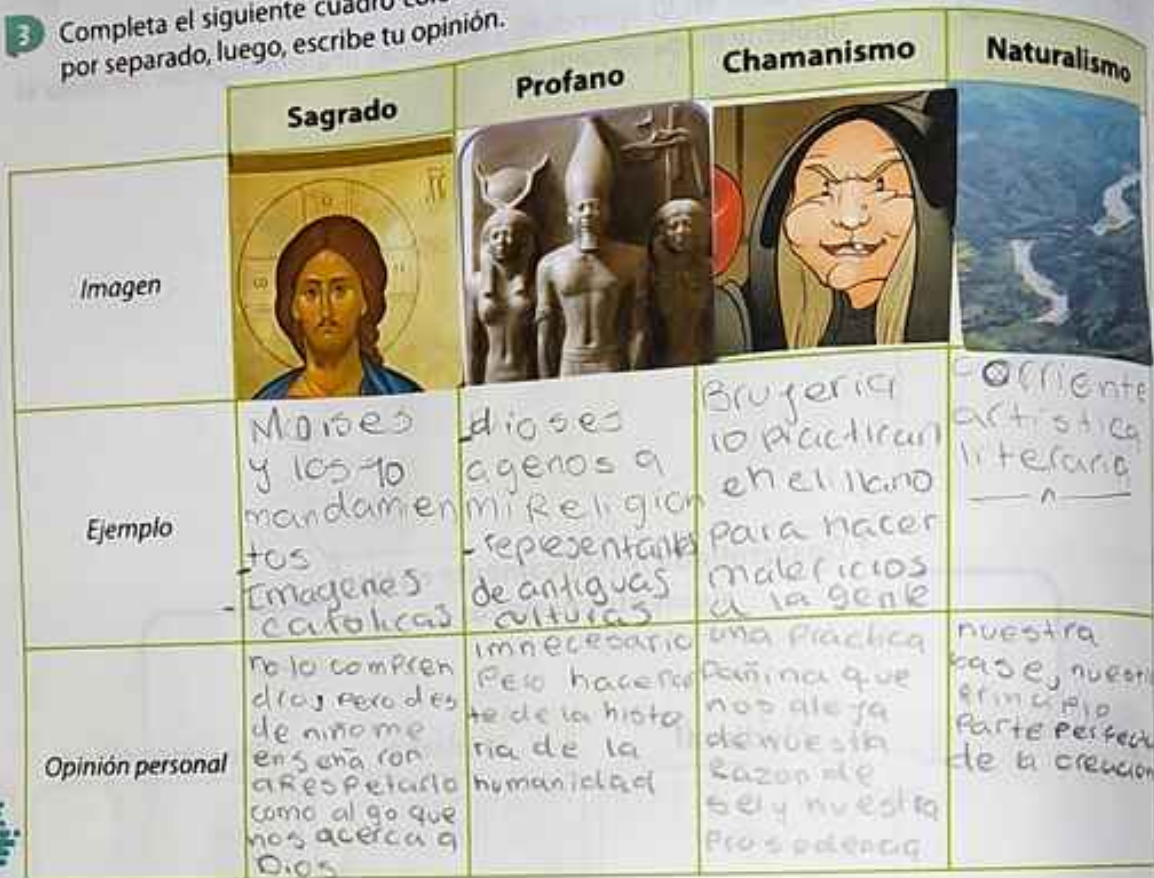 3 Completa el siguiente cuadro
por separado, luego, escribe tu opinión.
Sagrado
Profano
Chamanismo
Naturalismo
Imagen
Ejemplo
Moises
y los 10
mandamien
tos
- Imagenes
catolicas
- dioses
agenos a
mi Religion
- representantes
de antiguas
culturas
Brugeria
lo practican
en el llano
para hacer
maleficios
a la gente
Corriente
artistica
literaria
Opinión personal
no lo compren
dia, pero des
de niño me
enseña ron
a Respetarlo
como al go que
nos acerca a
Dios
imnecesario
Pero hace
te de la histo
ria de la
humanidad
una practica
Dañina que
nos aleja
de nuestra
Razon de
ser y nuestra
nuestra
base, nuestr
principio
Parte Perfecta
de la creacion